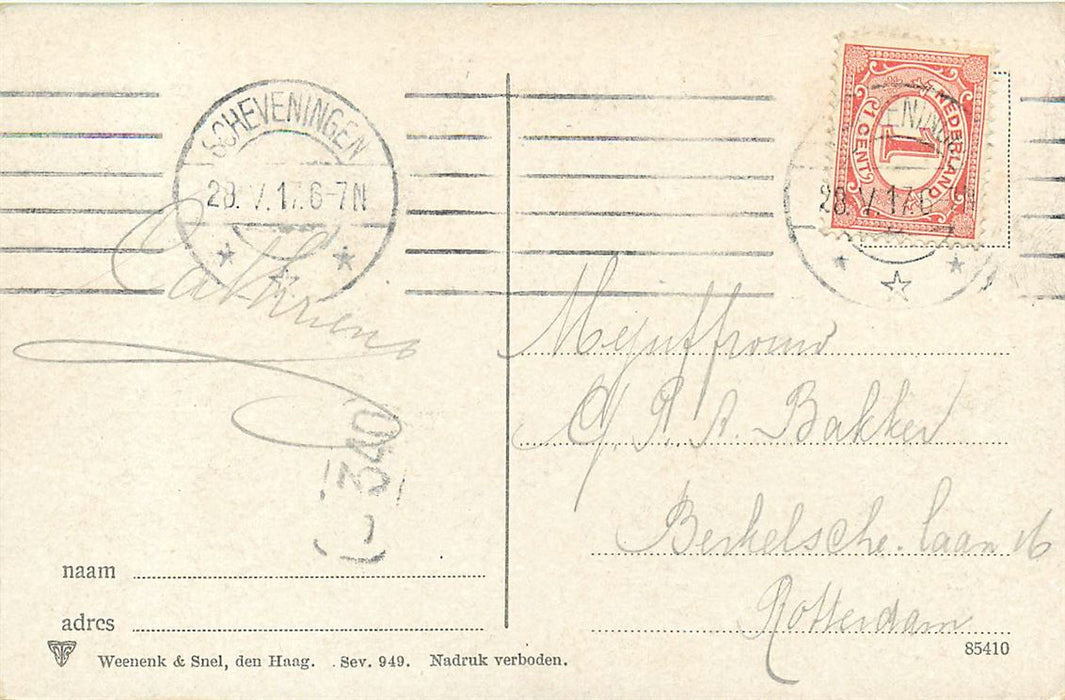 SCHEVENINGEN
28.V.17.6-7N
NEDERLAND
1
1 CENT
28.V.17.6-7N
Mejuffrouw
P. A. Bakker
Berkelsche laan 16
Rotterdam
340
naam
adres
Weenenk & Snel, den Haag. Sev. 949. Nadruk verboden.
85410